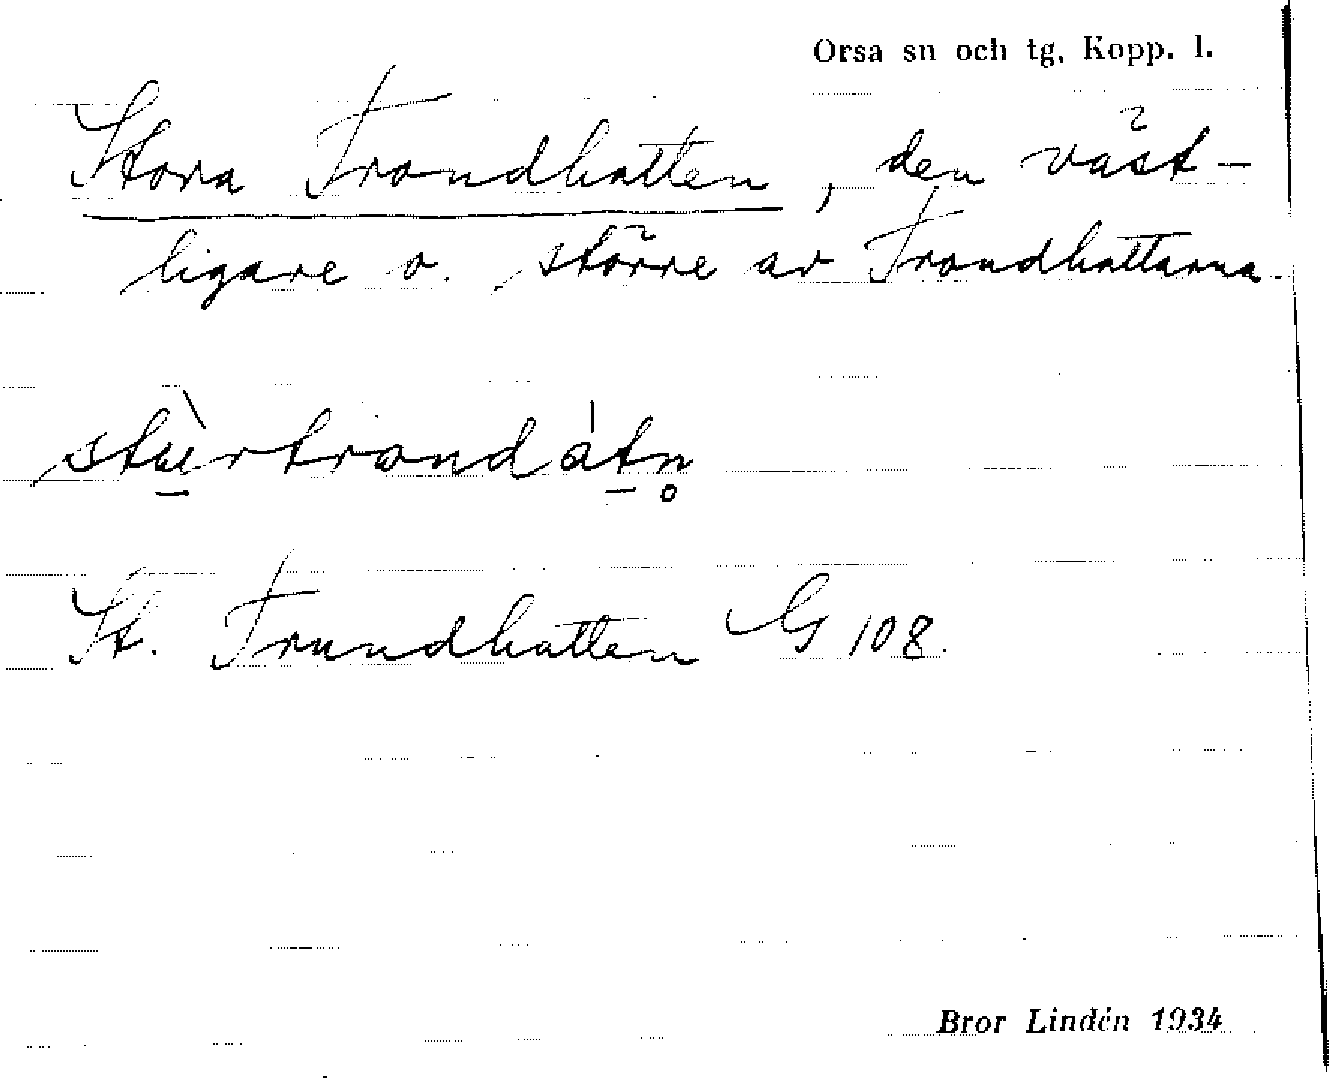 Orsa sn och tg, Kopp. l.
Stora Trondhatten, den väst-
ligare o. större av Trondhattarna.
stùrtrondátn̥
St. Trundhatten G 108.
Bror Lindén 1934